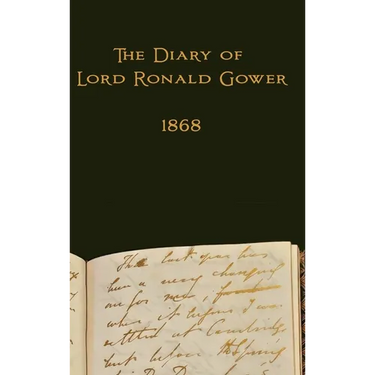 The Diary of
Lord Ronald Gower
1868
The last year has
been a very changing
one for me,
when it begun I was
settled at Cambridge
but before